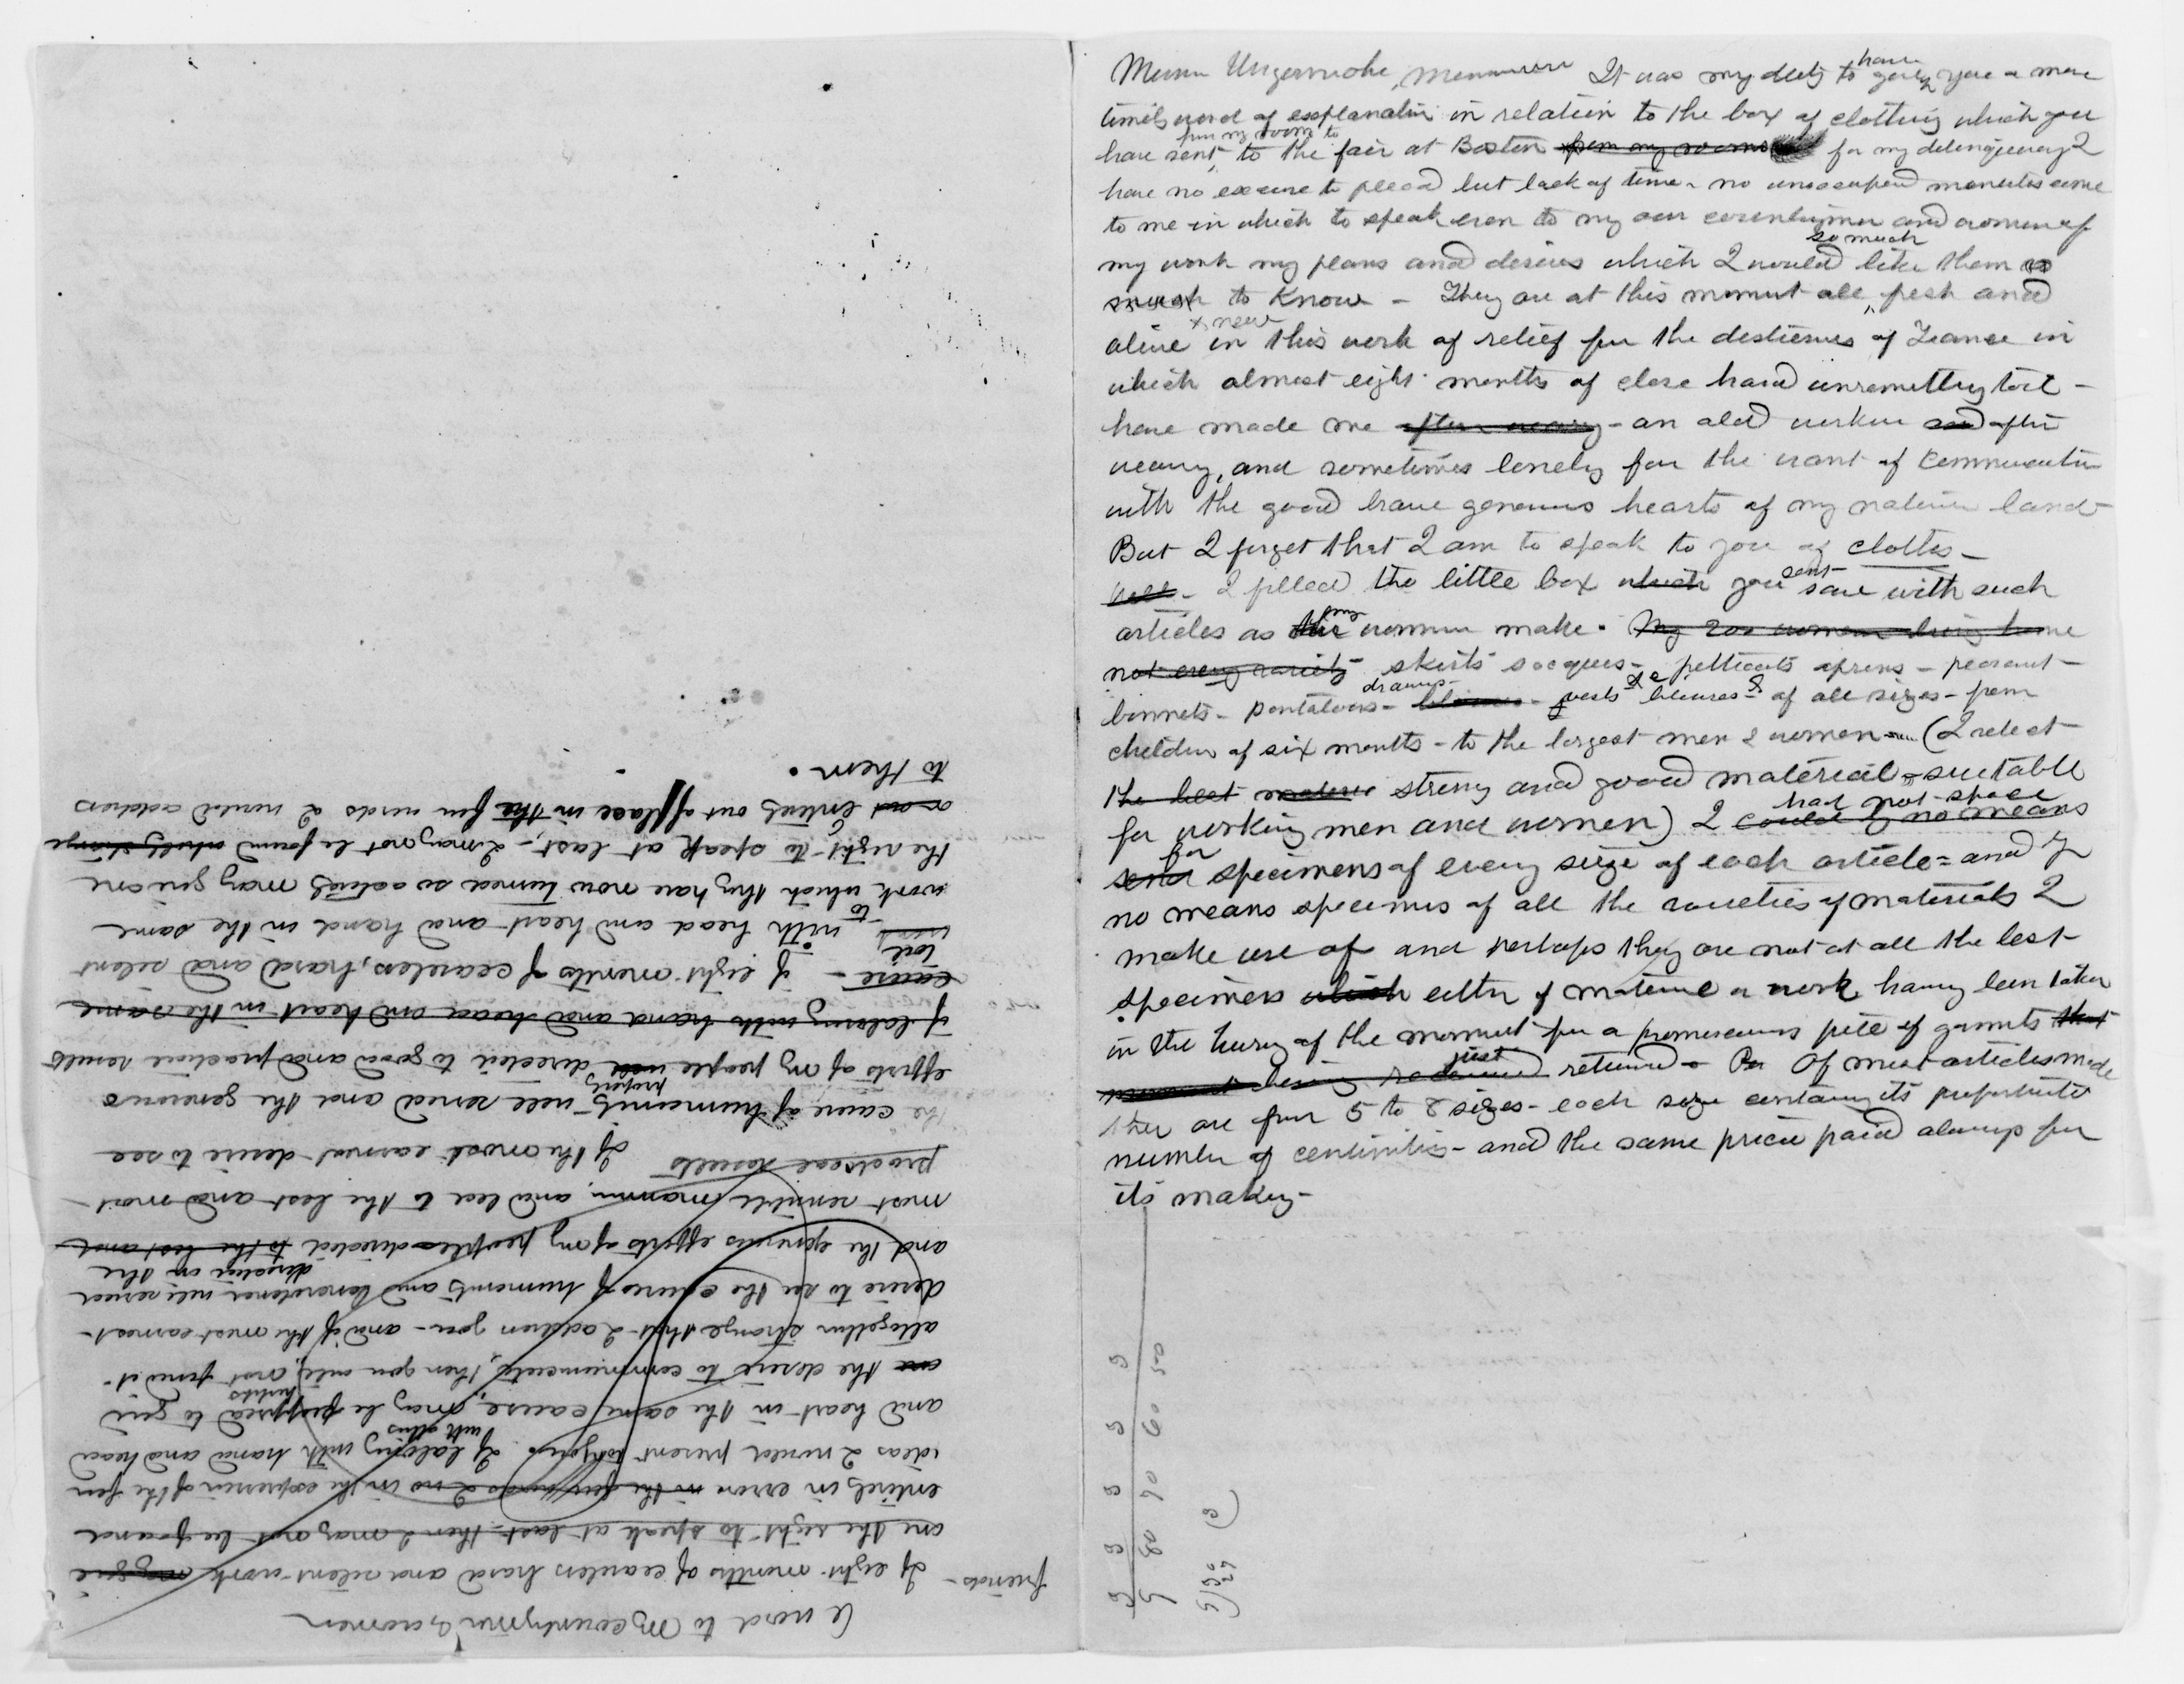 It was my duty to have given you a more
timely word of explanation in relation to the box of clothing which you
have sent from my rooms to to the fair at Boston from my rooms for my delinquency I
have no excuse to plead but lack of time - no unoccupied minutes come
to me in which to speak even to my own countrymen and women of
my work my plans and desires which I would so much like them so
much to know - They are at this moment all fresh and
alive & new in this work of relief for the destitutes of France in
which almost eight months of close hard unremitting toil -
have made me often weary - an old worker and often
weary, and sometimes lonely for the want of communication
with the good brave generous hearts of my native land -
But I forget that I am to speak to you of clothes -
Well - I filled the little box which you sent saw with such
articles as the my women make. My 200 women bring home
not every variety - skirts sacques - petticoats aprons - peasant
bonnets - pantaloons - drawers - blouses - vests & blouses & of all sizes - from
children of six months - to the largest men & women - (I select
the best material strong and good material - suitable
for working men and women) I could by no means had not space
send for specimens of every size of each article = and by
no means specimens of all the varieties of materials I
make use of and perhaps they are not at all the best
specimens which either of material or work, having been taken
in the hurry of the moment from a promiscuous pile of garments that
being just returned - Of most articles made
there are from 5 to 8 sizes - each size containing its proportionate
number of centimetres - and the same price paid always for
its making -
3 3 3 3 3
9 80 70 60 50
A word to my countrymen & women
friends -
If eight months of ceaseless hard and silent work may give
one the right to speak at last - then I may not be found
entirely in error in the few words I no in the expression of the few
ideas I would present to you. If laboring with others with hand and head
and heart in the same cause, may be supposed to give
the desire to communicate, then you will, not find it
altogether strange that I address you - and if the most earnest
desire to see the cause of humanity and benevolence well served
and the generous efforts of my people directed to the best and
directed in the
most sensible manner, and led to the best and most
practical results If the most earnest desire to see
the cause of humanity well served and the generous
efforts of my people well properly directed to good and practical results
if laboring with hand and head and heart in the same
cause - if eight months of ceaseless, hard and silent
toil with head and heart and hand in the same
work to which they have now turned so actively may give one
the right to speak at last, - I may not be found wholly strange
or out entirely out of place in the few words I would address
to them.